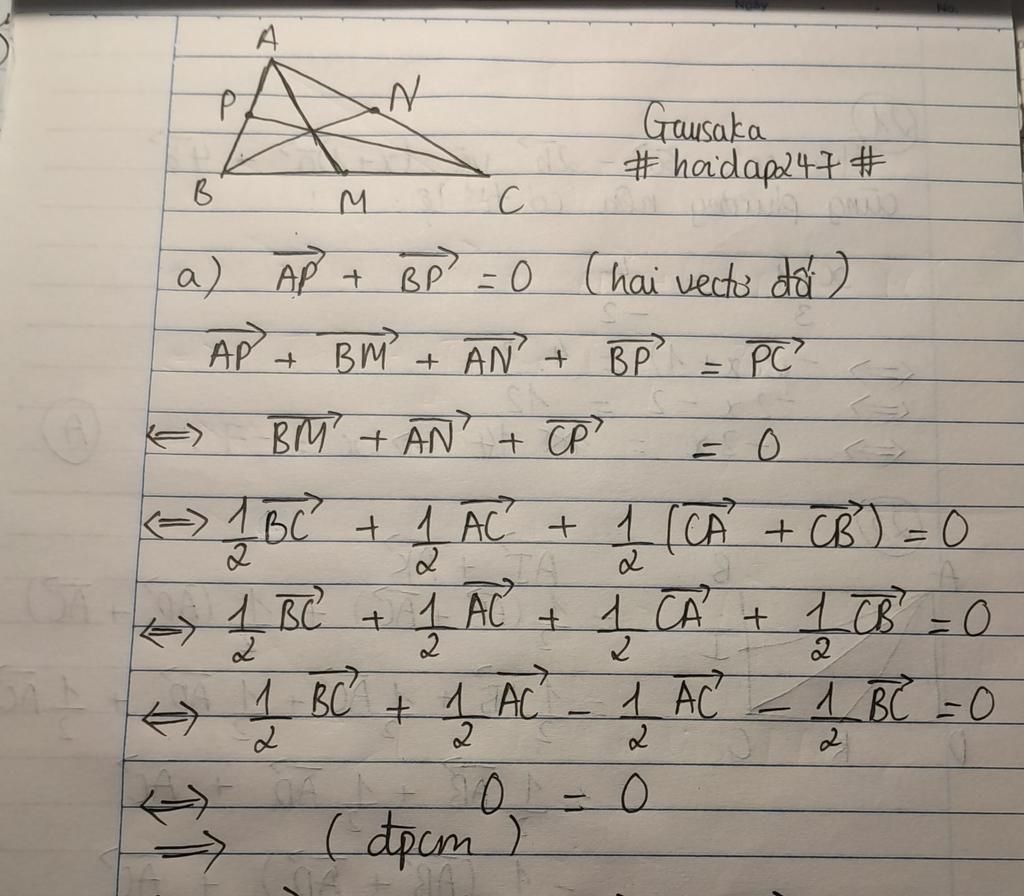 A
P
N
B
M
C
Gausaka
# hoidap247 #
a) \overrightarrow{AP} + \overrightarrow{BP} = 0 (hai vectơ đối)
\overrightarrow{AP} + \overrightarrow{BM} + \overrightarrow{AN} + \overrightarrow{BP} = \overrightarrow{PC}
⇔ \overrightarrow{BM} + \overrightarrow{AN} + \overrightarrow{CP} = 0
⇔ \frac{1}{2} \overrightarrow{BC} + \frac{1}{2} \overrightarrow{AC} + \frac{1}{2} (\overrightarrow{CA} + \overrightarrow{CB}) = 0
⇔ \frac{1}{2} \overrightarrow{BC} + \frac{1}{2} \overrightarrow{AC} + \frac{1}{2} \overrightarrow{CA} + \frac{1}{2} \overrightarrow{CB} = 0
⇔ \frac{1}{2} \overrightarrow{BC} + \frac{1}{2} \overrightarrow{AC} - \frac{1}{2} \overrightarrow{AC} - \frac{1}{2} \overrightarrow{BC} = 0
⇔ 0 = 0
⇒ (đpcm)